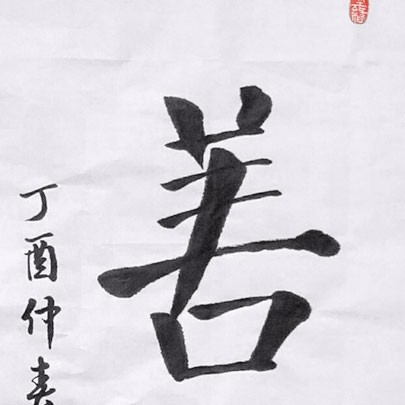 善
丁酉仲春